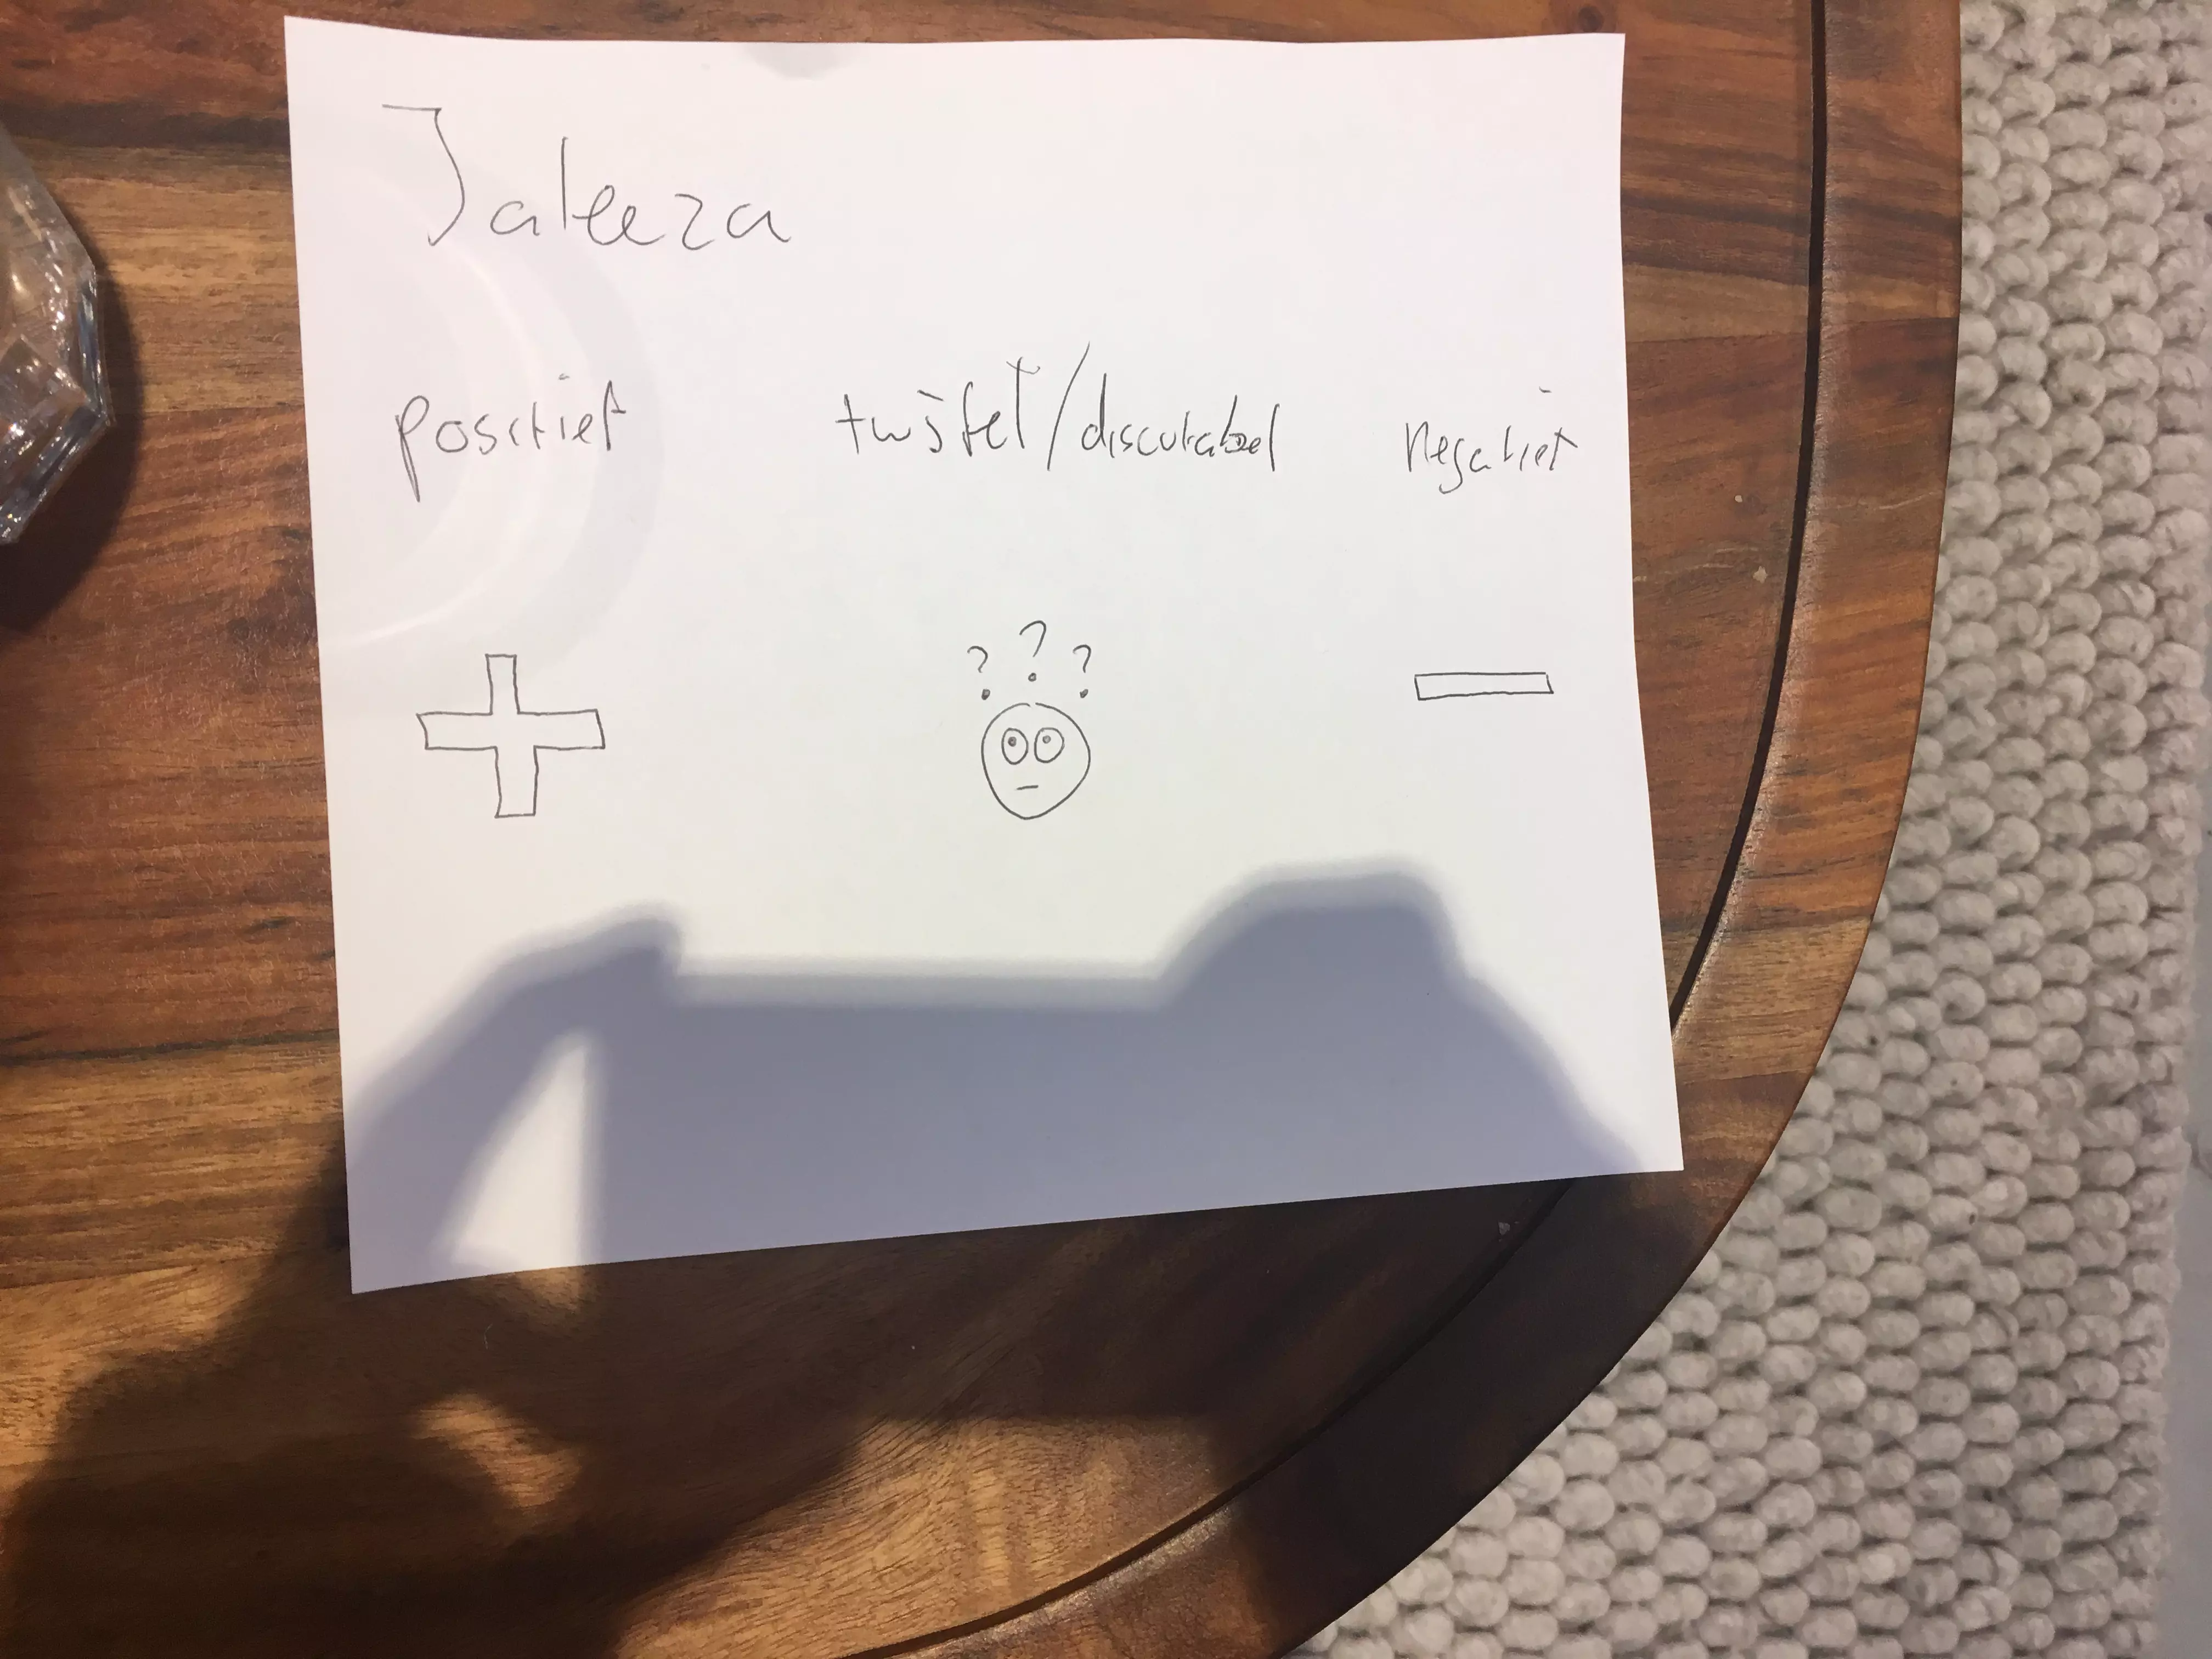 Jaleeza
positief twijfel/discutabel negatief
? ? ?